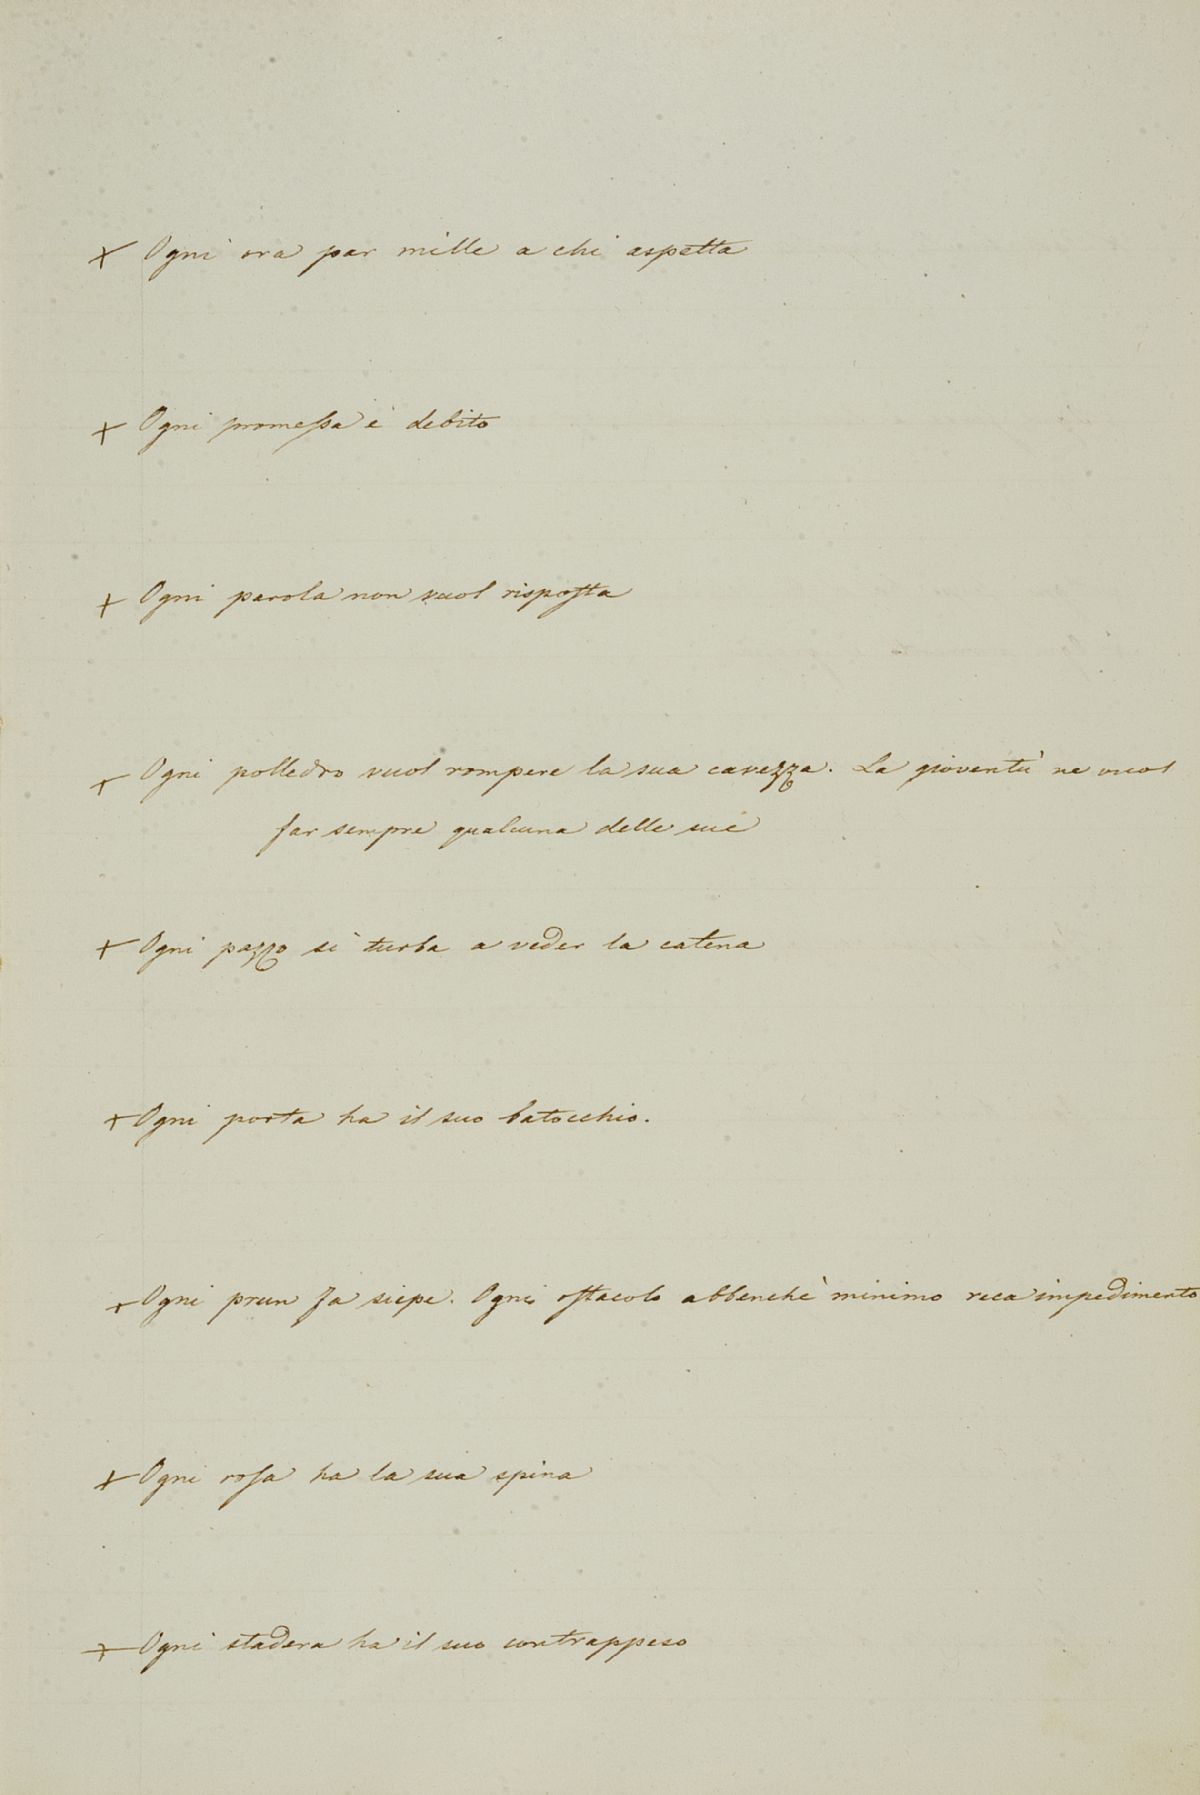 + Ogni ora par mille a chi aspetta
+ Ogni promessa è debito
+ Ogni parola non vuol risposta
+ Ogni polledro vuol rompere la sua cavezza. La gioventù ne vuol
far sempre qualcuna delle sue
+ Ogni pazzo si turba a veder la catena
+ Ogni porta ha il suo batocchio.
+ Ogni prun fa siepe. Ogni ostacolo abbenchè minimo reca impedimento
+ Ogni rosa ha la sua spina
+ Ogni stadera ha il suo contrappeso